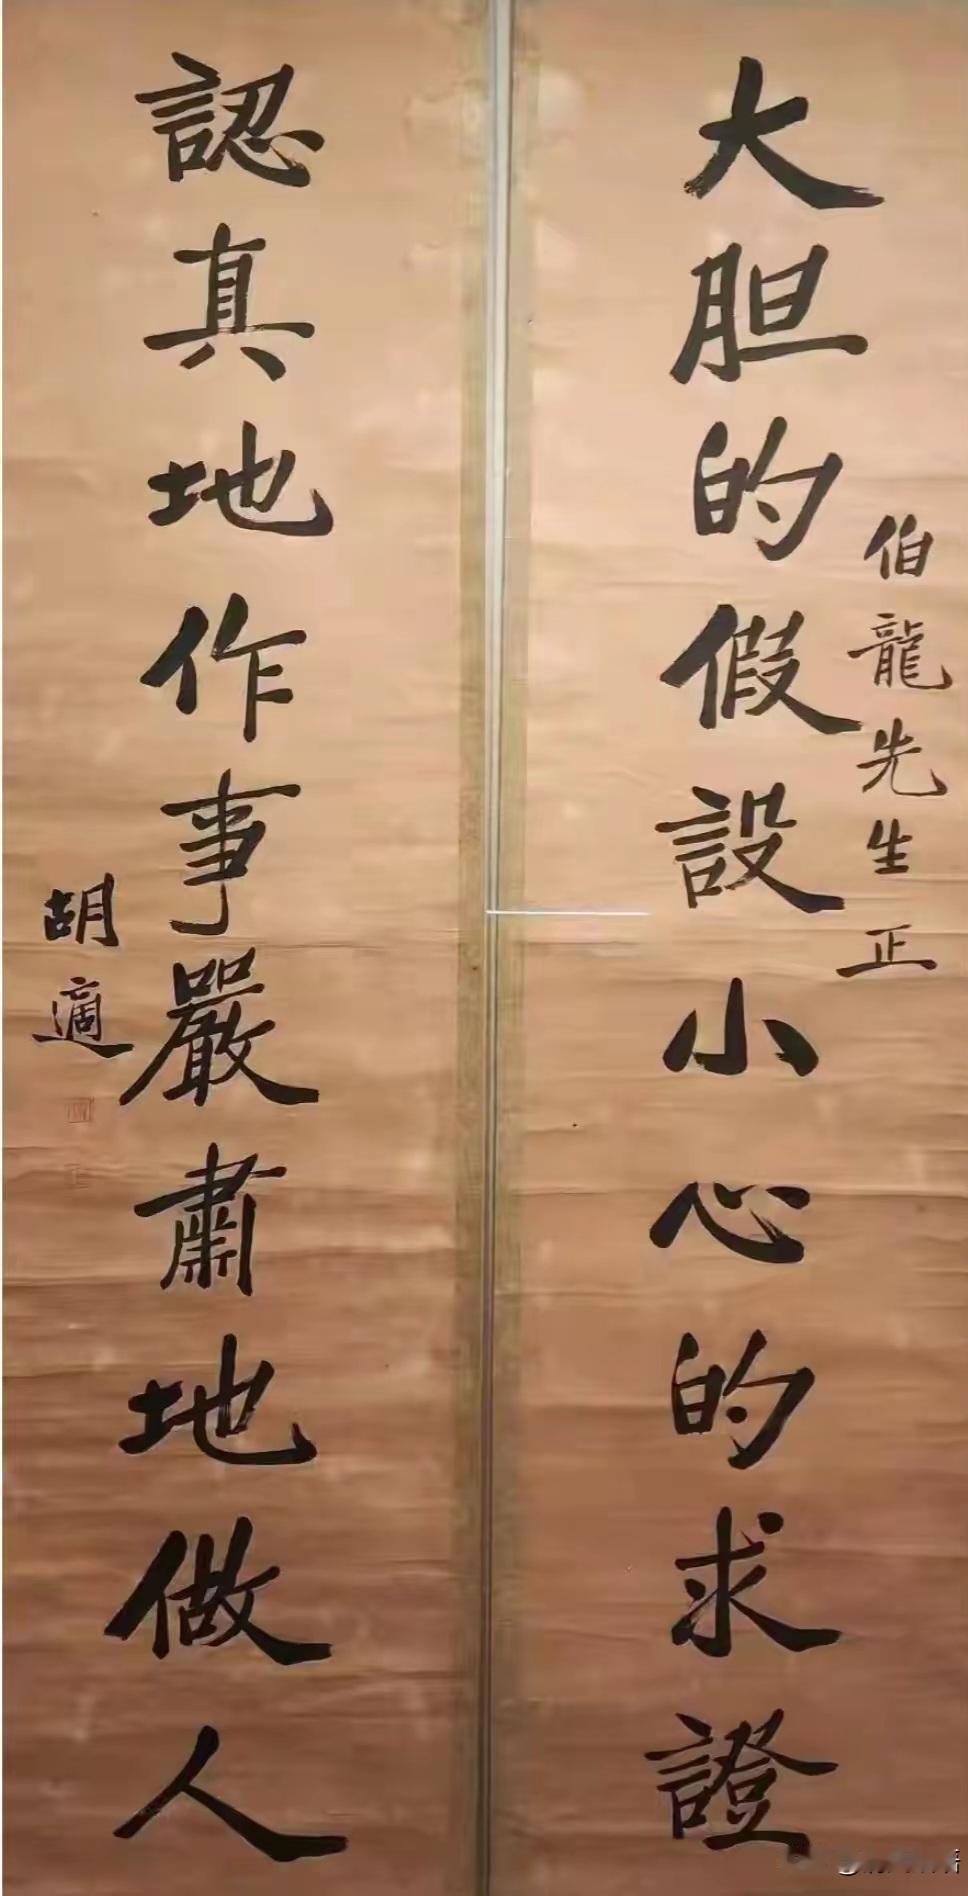 伯龍先生正
大胆的假設小心的求證
認真地作事嚴肅地做人
胡適